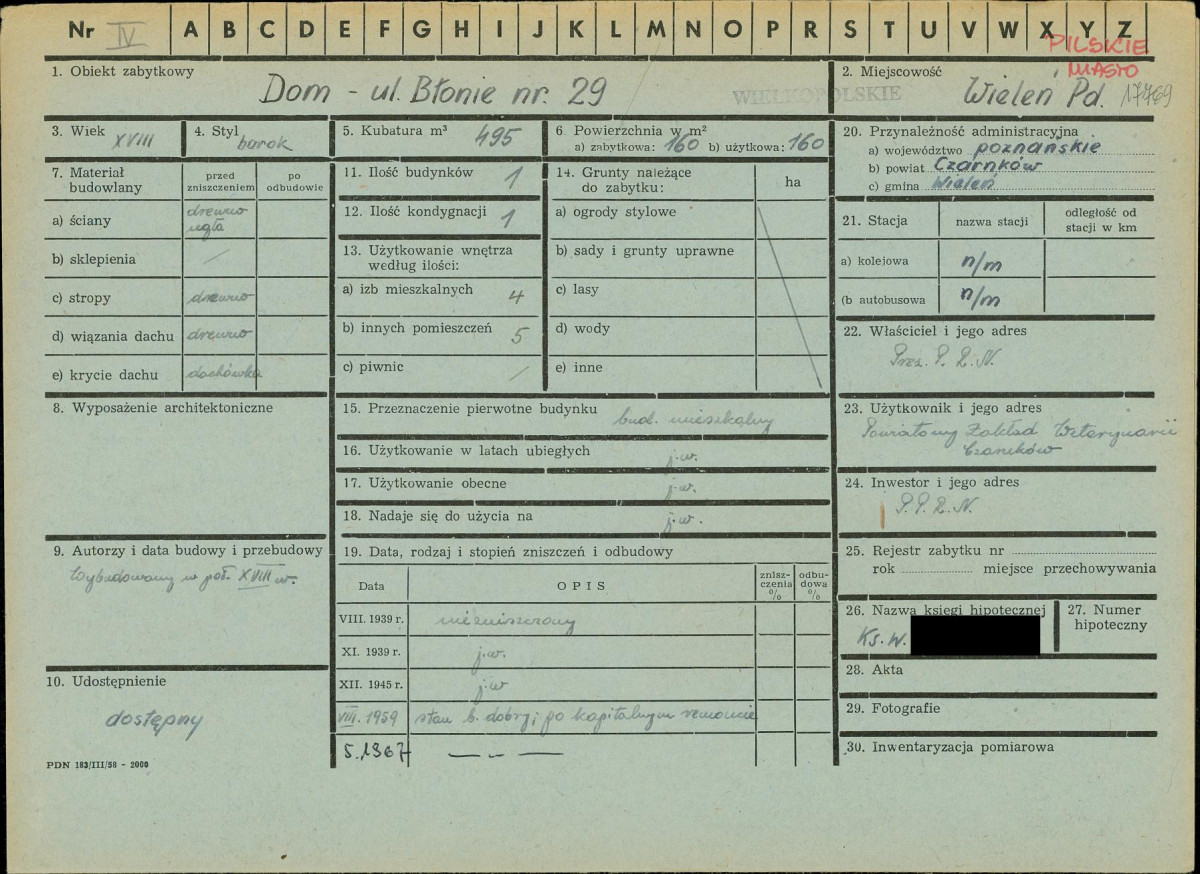 Nr IV A B C D E F G H I J K L M N O P R S T U V W X Y Z
PILSKIE
MIASTO
1. Obiekt zabytkowy
Dom - ul. Błonie nr. 29
WIELKOPOLSKIE
2. Miejscowość
Wieleń Pd. 17769
3. Wiek
XVIII
4. Styl
barok
5. Kubatura m³ 495
6 Powierzchnia w m²
a) zabytkowa: 160 b) użytkowa: 160
7. Materiał budowlany
przed zniszczeniem
po odbudowie
a) ściany drewno
cegła
b) sklepienia /
c) stropy drewno
d) wiązania dachu drewno
e) krycie dachu dachówka
8. Wyposażenie architektoniczne
9. Autorzy i data budowy i przebudowy
Wybudowany w poł. XVIII w.
10. Udostępnienie
dostępny
PDN 183/III/58 - 2000
11. Ilość budynków 1
12. Ilość kondygnacji 1
13. Użytkowanie wnętrza
według ilości:
a) izb mieszkalnych 4
b) innych pomieszczeń 5
c) piwnic /
14. Grunty należące
do zabytku:
ha
a) ogrody stylowe
b) sady i grunty uprawne
c) lasy
d) wody
e) inne
15. Przeznaczenie pierwotne budynku bud. mieszkalny
16. Użytkowanie w latach ubiegłych j.w.
17. Użytkowanie obecne j.w.
18. Nadaje się do użycia na j.w.
19. Data, rodzaj i stopień zniszczeń i odbudowy
Data
OPIS
znisz-
czenia
%
odbu-
dowa
%
VIII. 1939 r. niezniszczony
XI. 1939 r. j.w.
XII. 1945 r. j.w
VIII. 1959 stan b. dobry; po kapitalnym remoncie
5.1967 — - —
20. Przynależność administracyjna
a) województwo poznańskie
b) powiat Czarnków
c) gmina Wieleń
21. Stacja
nazwa stacji
odległość od
stacji w km
a) kolejowa n/m
(b autobusowa n/m
22. Właściciel i jego adres
Prez. P. R. N.
23. Użytkownik i jego adres
Powiatowy Zakład Weterynarii
Czarnków
24. Inwestor i jego adres
P. P. R. N.
25. Rejestr zabytku nr
rok miejsce przechowywania
26. Nazwa księgi hipotecznej
Ks. W.
27. Numer
hipoteczny
28. Akta
29. Fotografie
30. Inwentaryzacja pomiarowa